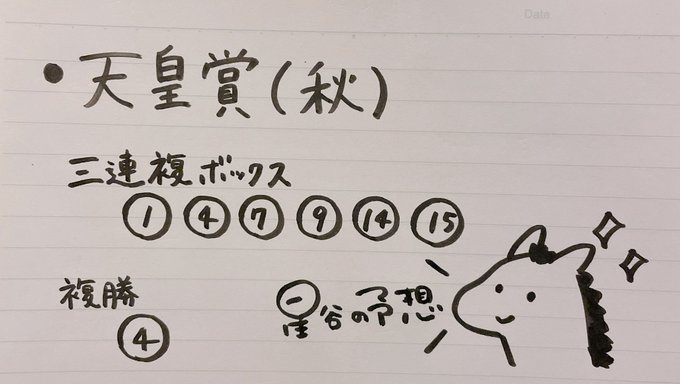 Date
• 天皇賞(秋)
三連複ボックス
① ④ ⑦ ⑨ ⑭ ⑮
複勝
④
星谷の予想